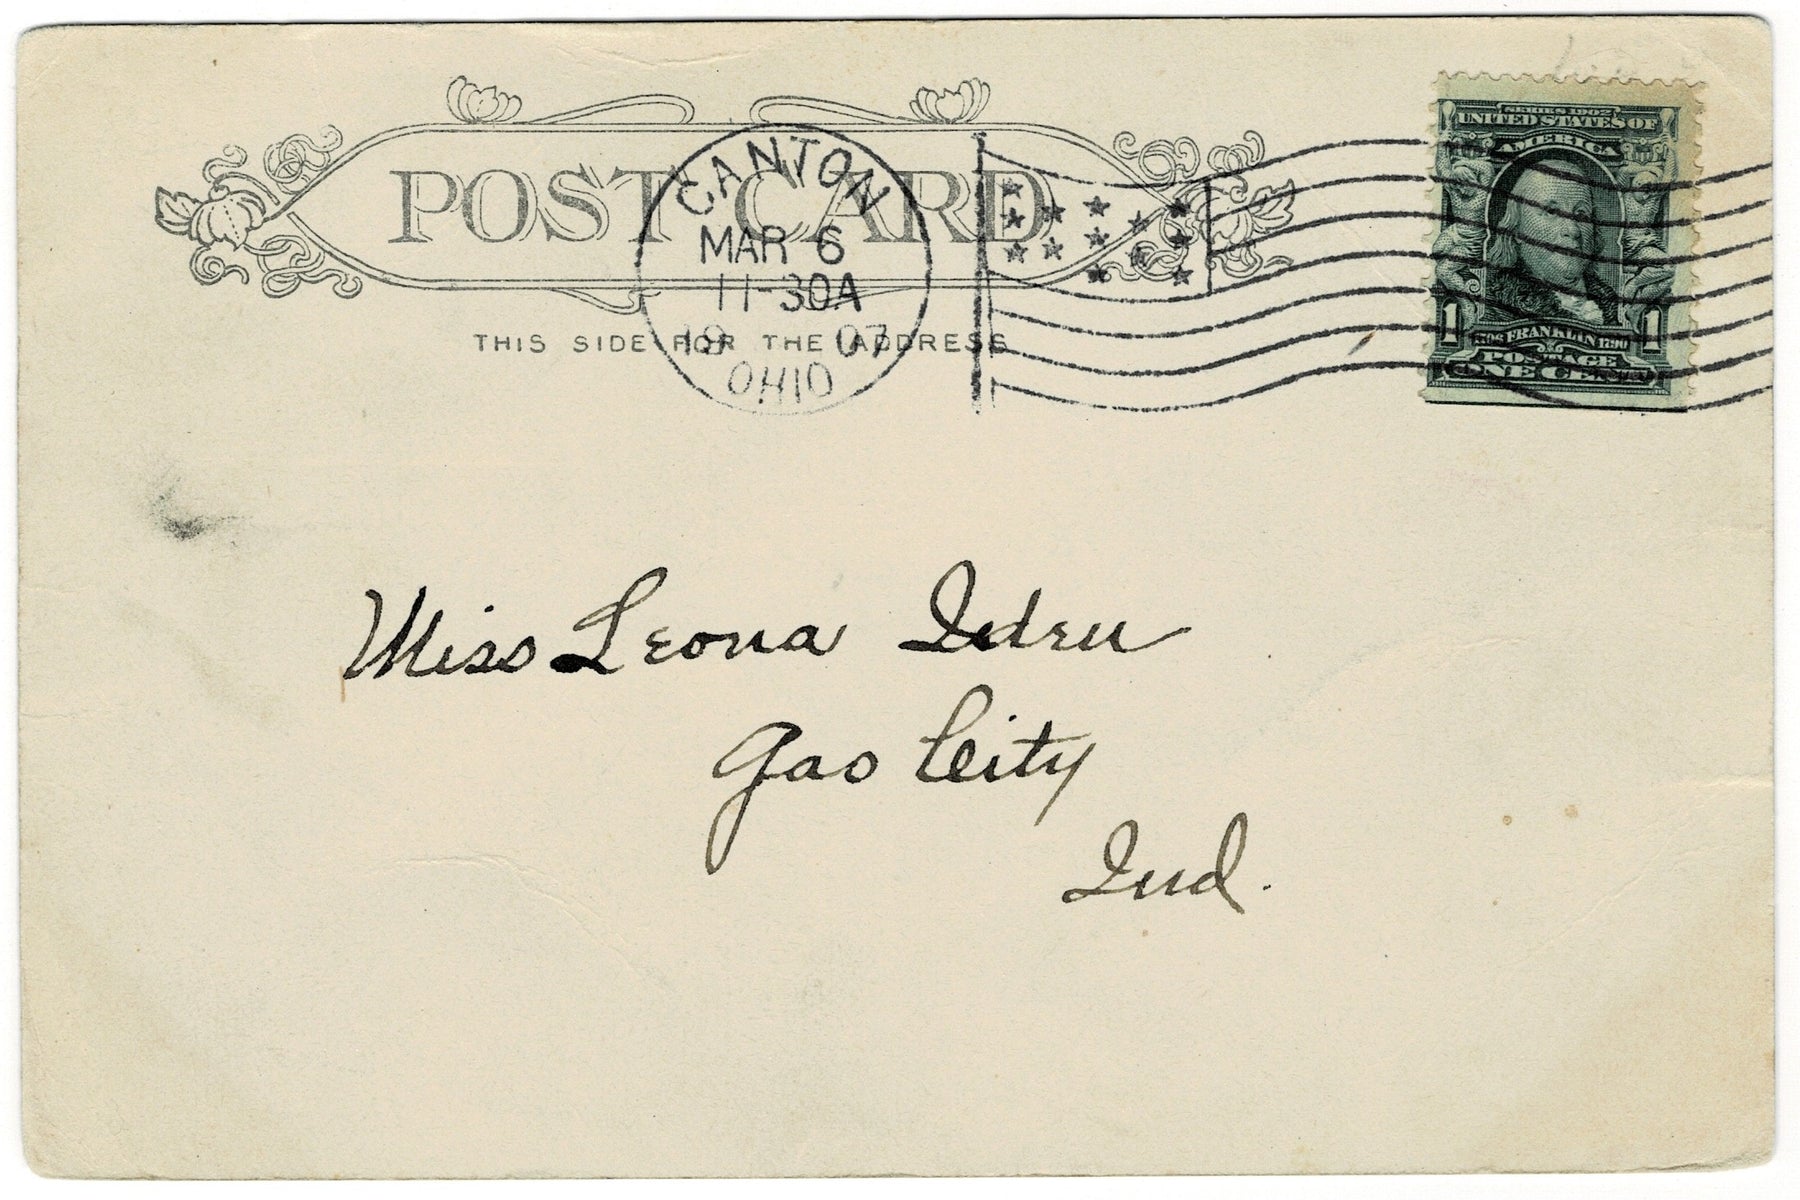 POST CARD
CANTON
MAR 6
11-30A
1907
OHIO
THIS SIDE FOR THE ADDRESS
SERIES 1902
UNITED STATES OF
AMERICA
1 1
FRANKLIN
POSTAGE
ONE CENT
Miss Leona Iden
Gas City
Ind.